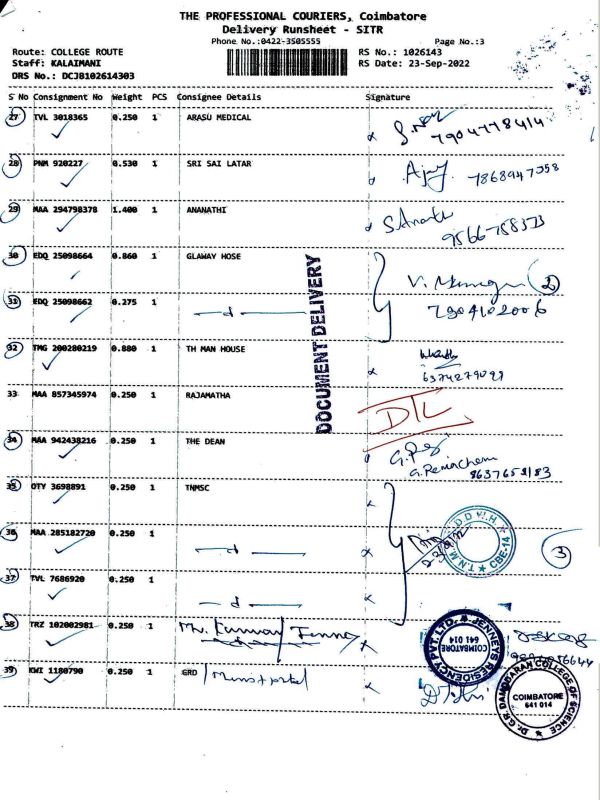 THE PROFESSIONAL COURIERS, Coimbatore
Delivery Runsheet - SITR
Phone No.:0422-3505555 Page No.:3
Route: COLLEGE ROUTE RS No.: 1026143
Staff: KALAIMANI RS Date: 23-Sep-2022
DRS No.: DCJB102614303
S No Consignment No Weight PCS Consignee Details Signature
27 TVL 3018365 0.250 1 ARASU MEDICAL
7904778414
28 PNM 920227 0.530 1 SRI SAI LATAR Ajay 7868947358
29 MAA 294798378 1.400 1 ANANATHI S.Ananth
9566758373
30 EDQ 25098664 0.860 1 GLAWAY HOSE V. Murugan 2
31 EDQ 25098662 0.275 1 —d— 7904102006
DOCUMENT DELIVERY
32 TMG 200280219 0.880 1 TH MAN HOUSE
6374279098
33 MAA 857345974 0.250 1 RAJAMATHA DTL
34 MAA 942438216 0.250 1 THE DEAN
8637652183
35 OTY 3698891 0.250 1 TNMSC
36 MAA 285182720 0.250 1 —d— 3
CBE-14
37 TVL 7686920 0.250 1 —d—
38 TRZ 102002981 0.250 1 Mr. Kumar/ Jenney
JENNEYS RESIDENCY PVT. LTD.
COIMBATORE
641 014
39 KWI 1180790 0.250 1 GRD/
Dr. G.R. DAMODARAN COLLEGE OF SCIENCE
COIMBATORE
641 014